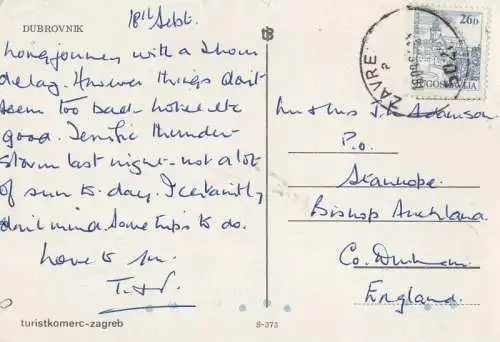 DUBROVNIK
18th Sept.
Long journey with a 3 hour
delay. However things don't
seem too bad - hotel etc
good. Terrific thunder
storm last night - not a lot
of sun to-day. I certainly
don't mind. Some trips to do.
Love to
turistkomerc-zagreb
8-373
ZAVRE
260
JUGOSLAVIJA
Mr & Mrs J. Adamson
P.O.
Stanhope.
Bishop Auckland
Co. Durham.
England.